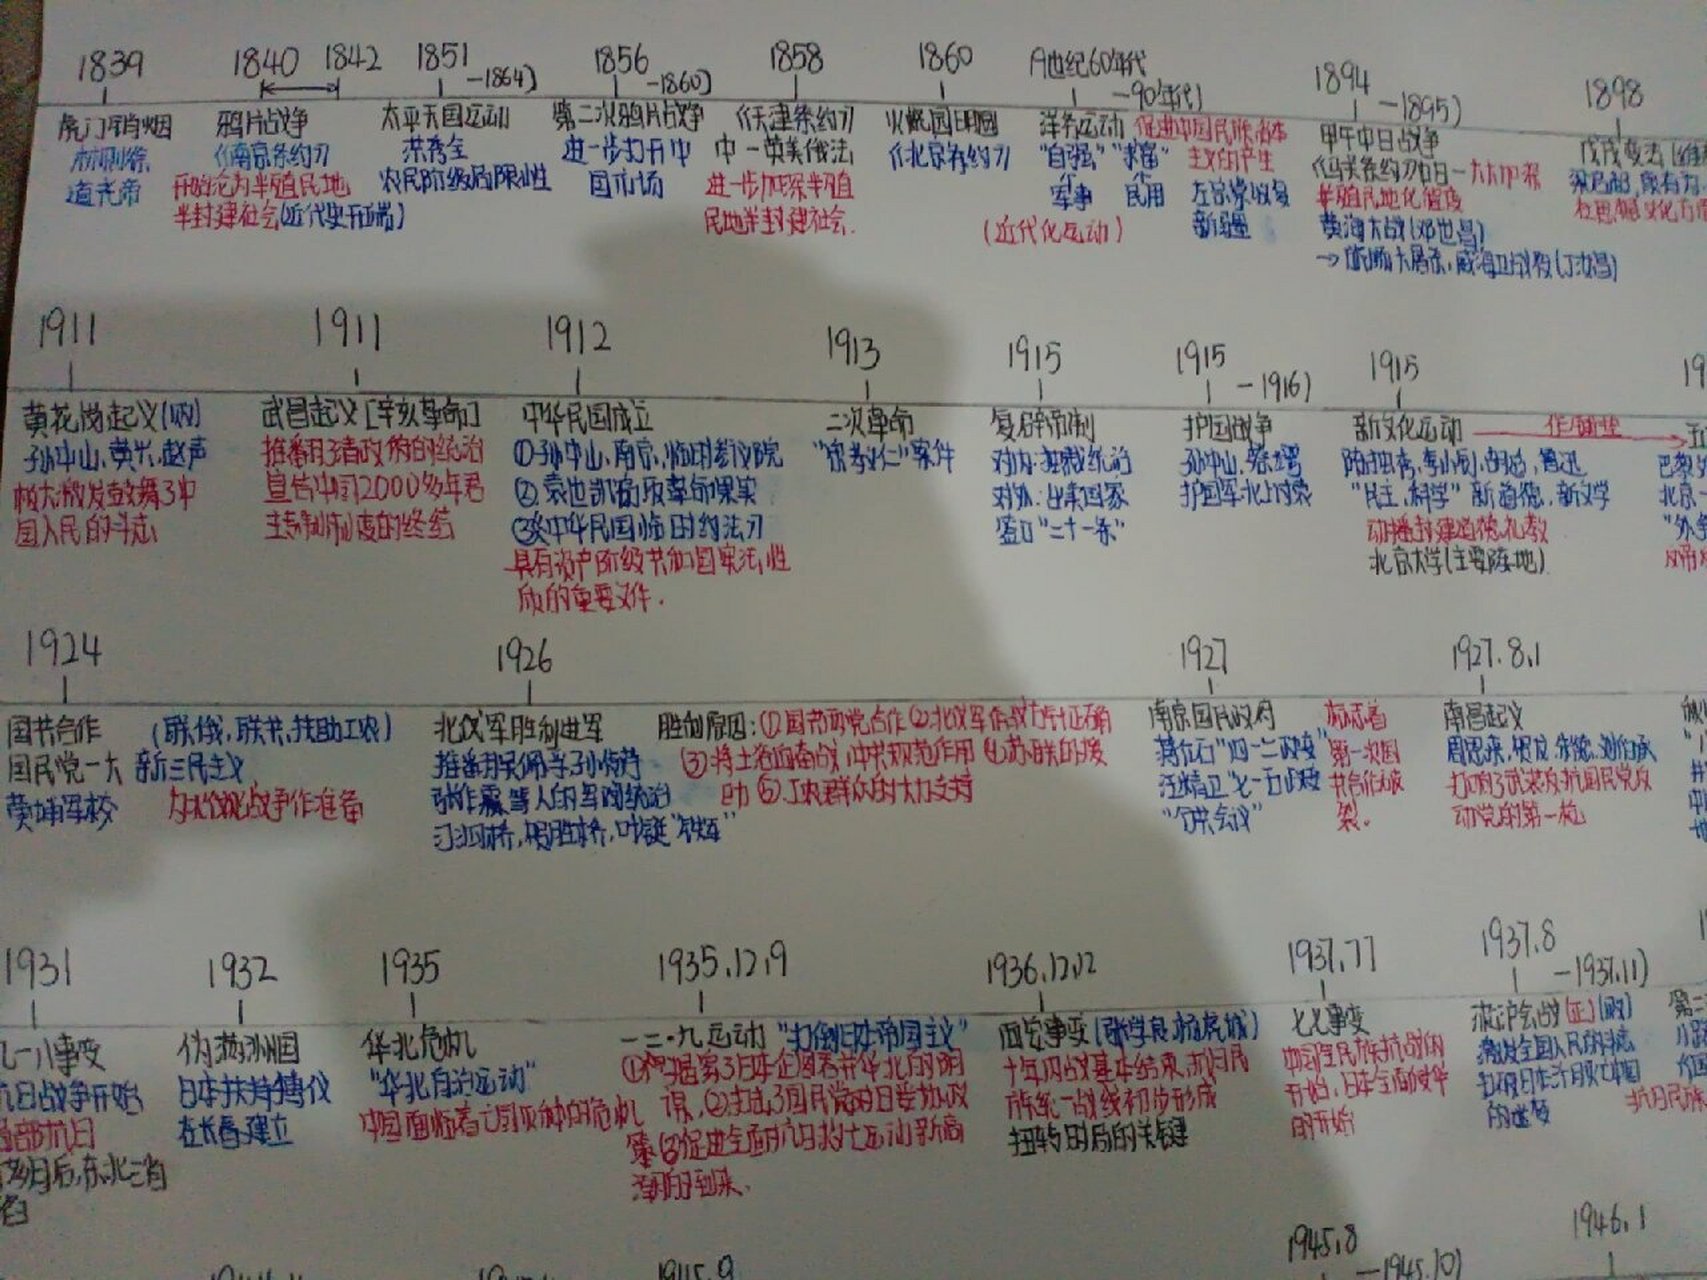 1839
1840 1842
1851 -1864)
1856 -1860)
1858
1860
19世纪60年代 -90年代)
1894 -1895)
1898
虎门销烟
林则徐
道光帝
鸦片战争
《南京条约》
开始沦为半殖民地
半封建社会(近代史开端)
太平天国运动
洪秀全
农民阶级局限性
第二次鸦片战争
进一步打开中
国市场
《天津条约》
中-英美俄法
进一步加深半殖
民地半封建社会.
火烧圆明园
《北京条约》
洋务运动
"自强" "求富"
军事 民用
促进中国民族资本
主义的产生
左宗棠收复
新疆
(近代化运动)
甲午中日战争
《马关条约》中日-大大加深
半殖民地化程度
黄海大战(邓世昌)
→旅顺大屠杀,威海卫战役(丁汝昌)
戊戌变法(维
梁启超,康有为
在思想文化方面
1911
1911
1912
1913
1915
1915 -1916)
1915
19
黄花岗起义(败)
孙中山,黄兴,赵声
极大激发鼓舞了中
国人民的斗志
武昌起义[辛亥革命]
推翻了清政府的统治
宣告中国2000多年君
主专制制度的终结
中华民国成立
①孙中山,南京,临时参议院
②袁世凯窃取革命果实
③《中华民国临时约法》
具有资产阶级共和国宪法性
质的重要文件.
二次革命
"宋教仁"案件
复辟帝制
对内:独裁统治
对外:出卖国家
签订"二十一条"
护国战争
孙中山,蔡锷
护国军北上讨袁
新文化运动
陈独秀,李大钊,胡适,鲁迅
"民主,科学" 新道德,新文学
动摇封建道德礼教
北京大学(主要阵地)
五
巴黎
北京
"外
1924
1926
1927
1927.8.1
国共合作 (联俄,联共,扶助工农)
国民党一大 新三民主义
黄埔军校 为北伐战争作准备
北伐军胜利进军
推翻吴佩孚孙传芳
张作霖等人的军阀统治
汀泗桥,贺胜桥,叶挺"铁军"
胜利原因:①国共两党合作②北伐军作战方针正确
③将士浴血奋战,冲锋模范作用④苏联的援
助⑤工农群众的大力支持
南京国民政府
蒋介石"四一二政变"
汪精卫"七一五政变"
"分共会议"
标志着
第一次国
共合作破
裂.
南昌起义
周恩来,贺龙,朱德,刘伯承
打响了武装反抗国民党反
动党的第一枪
1931
1932
1935
1935.12.9
1936.12.12
1937.7.7
1937.8 -1937.11)
九一八事变
抗日战争开始
局部抗日
月后,东北三省
伪满洲国
日本扶持溥仪
在长春建立
华北危机
"华北自治运动"
中国面临着亡国灭种的危机
一二·九运动 "打倒日本帝国主义"
①揭露了日本企图吞并华北的阴
谋,②打击了国民党对日妥协政
策③促进全国抗日救亡运动新高
潮的到来.
西安事变(张学良,杨虎城)
十年内战基本结束,抗日民
族统一战线初步形成
扭转时局的关键
七七事变
中国全民族抗战的
开始,日本全面侵华
的开始
淞沪会战(正)(败)
激发全国人民的斗志
打破日本三个月灭亡中国
的迷梦
第二
抗日民族
1945.9
1945.8 -1945.10)
1946.1